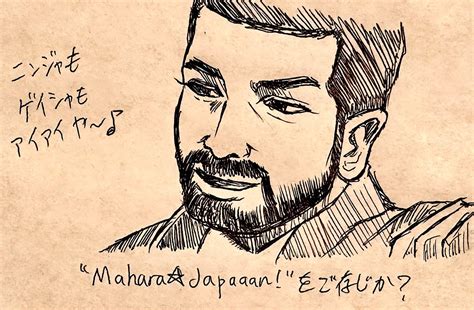 ニンジャも
ゲイシャも
アイアイヤ〜♪
“Mahara☆Japaaan!”をご存じか？